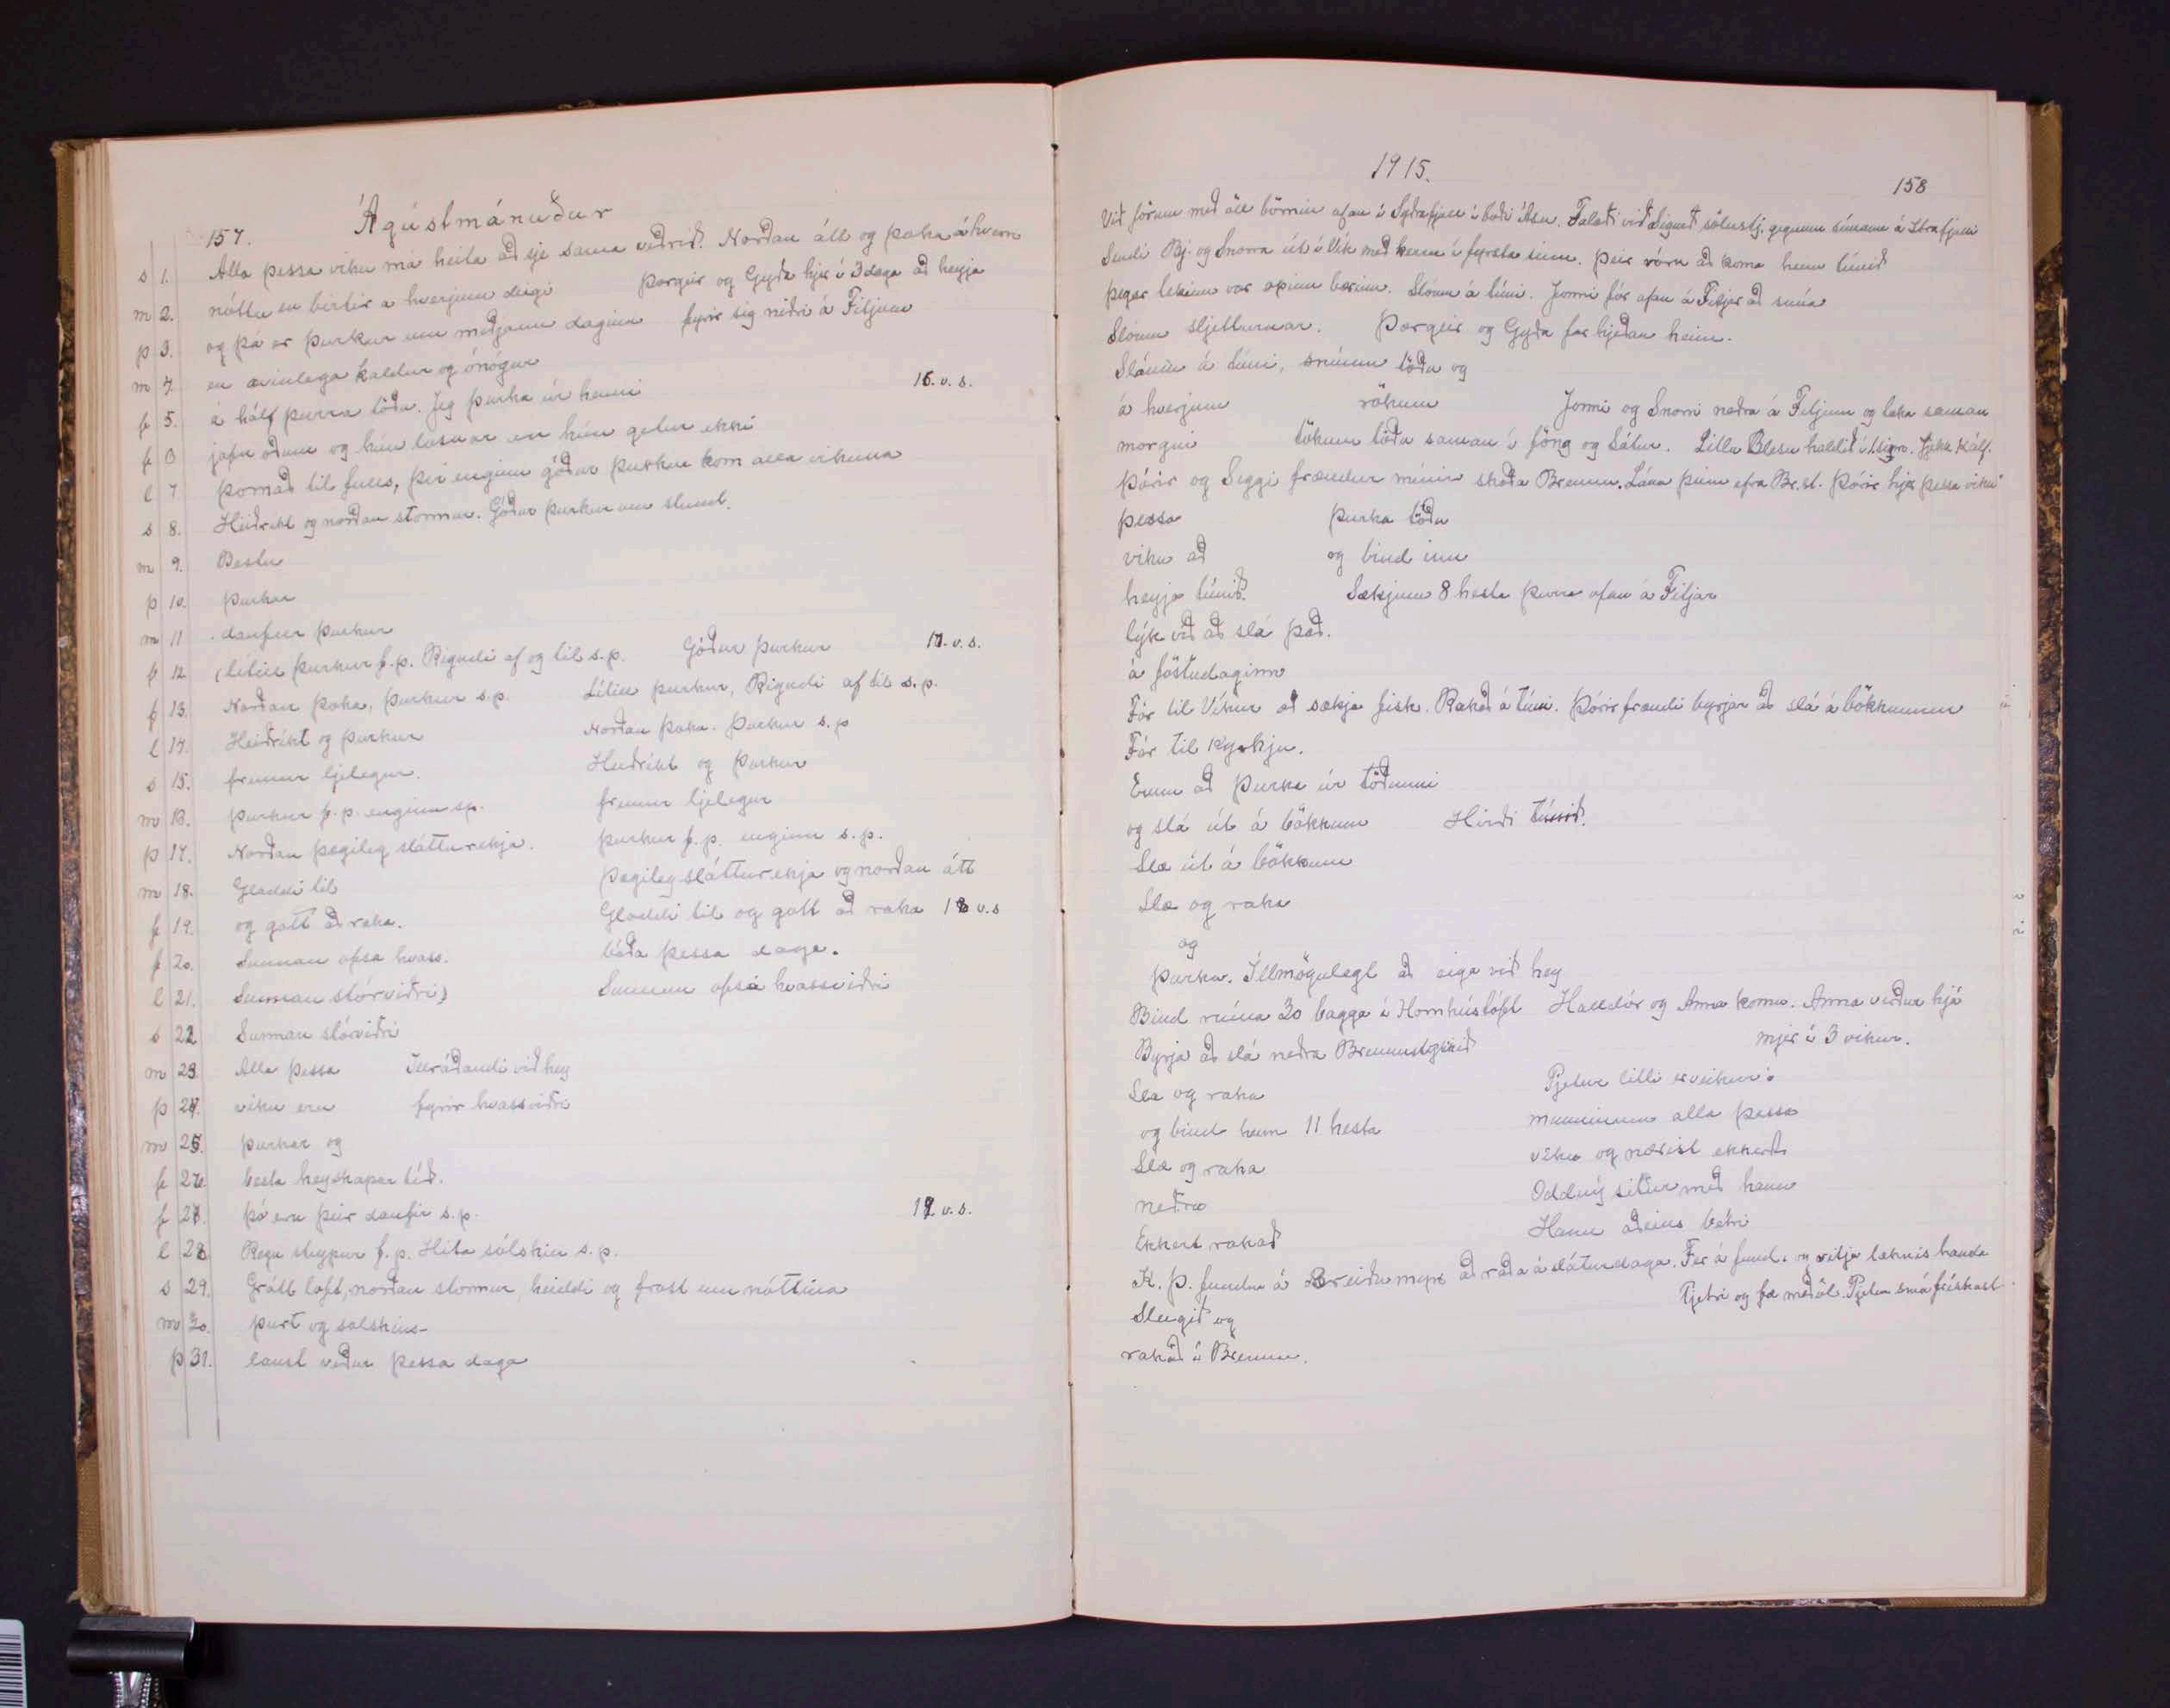 157. Ágústmánuður
s 1. Alla þessa viku má heita að sje sama veðrið. Norðan átt og þoka á hverri
m 2. nóttu en birtir á hverjum degi Þorgeir og Gyða hjer í 3 daga að heyja
þ 3. og þá er þurkur um miðjann daginn fyrir sig niðri á Fitjum
m 4. en æfinlega kaldur og ónógur
f 5. á hálf þurra töðu. Jeg þurka úr henni 16. v. s.
f 6 jafn óðum og hún losnar en hún getur ekki
l 7 þornað til fulls, því enginn góður þurkur kom alla vikuna
s 8. Heiðríkt og norðan stormur. Góður þurkur um stund.
m 9. Bestu
þ 10. þurkar
m 11 daufur þurkur
f 12 (lítill þurkur f.p. Rigndi af og til s.p. Góður þurkur 17. v. s.
f 13. Norðan þoka, þurkur s.p. Lítill þurkur, Rigndi af til s.p.
l 14. Heiðríkt og þurkur Norðan þoka. Þurkur s.p
s 15. fremur ljelegur. Heiðríkt og þurkur
m 16. þurkur f.p. enginn sp. fremur ljelegur
þ 17. Norðan þægileg slátturekja. þurkur f.p. enginn s.p.
m 18. Gladdi til þægileg slátturekja og norðan átt
f 19. og gott að raka. Gladdi til og gott að raka 18 v.s
f 20. Sunnan ofsa hvass. báða þessa daga.
l 21. Sunnan stórviðri) Sunnan ofsa hvassviðri
s 22 Sunnan stórviðri
m 23 Alla þessa Illráðandi við hey
þ 24. viku eru fyrir hvassviðri
m 25. þurkar og
f 26. besta heyskapar tíð.
f 27. þó eru þeir daufir s.p. 19. v. s.
l 28 Regn steypur f.p. Hita sólskin s.p.
s 29. Grátt loft, norðan stormur, kuldi og frost um nóttina
m 30. þurt og sólskins-
þ 31. laust veður þessa daga
1915. 158
Við fórum með öll börnin ofan í Syðrafjall í boði Ásu. Talaði við Sigurð gegnum símann á Ytrafjalli
Sendi Bj. og Snorra út í Vík með kerru í fyrsta sinn. Þeir vóru að koma heim túnið
þegar lekinn var opinn bærinn. Sláum á túni. Jonni fór ofan á Fitjar að snúa
Sláum Sljetturnar. Þorgeir og Gyða far hjeðan heim.
Sláum á túni, snúum töðu og
á hverjum rökum Jonni og Snorri neðra á Fitjum og taka saman
morgni tökum töðu saman í föng og Sátur. Litla Blesu haldið í 1. sinn. fjekk kálf.
Þórir og Seggi frændur mínir skoða Brennu. Lána þeim efra Br.st. Þórir hjer þessa viku
þessa þurka töðu
viku að og bind inn
heyja túnið. Sækjum 8 hesta þurra ofan á Fitjar
lýk við að slá það.
á föstudaginn
Fór til Víkur að sækja fisk. Rakað á túni. Þórir frændi byrjar að slá á bökkunum
Fór til kyrkju.
Erum að þurka úr töðunni
og slá út á bökkum Hirði túnið.
Slæ út á bökkum
Slæ og raka
og
þurka. Illmögulegt að eiga við hey
Bind rúma 30 bagga í Hornhústóft Halldór og Anna koma. Anna verður hjá
Byrja að slá neðra mjer í 3 vikur.
Slæ og raka Pjetur litli er veikur í
og bind heim 11 hesta munninum alla þessa
Slæ og raka viku og nærist ekkert
neðra Oddný situr með hann
Ekkert rakað Hann aðeins betri
K. Þ. fundur á Breiðumýri að ráða á sláturdaga. Fer á fund. og vitja læknis handa
Slegið og Pjetri og fæ meðöl. Pjetur smá frískast
rakað í Brennu.